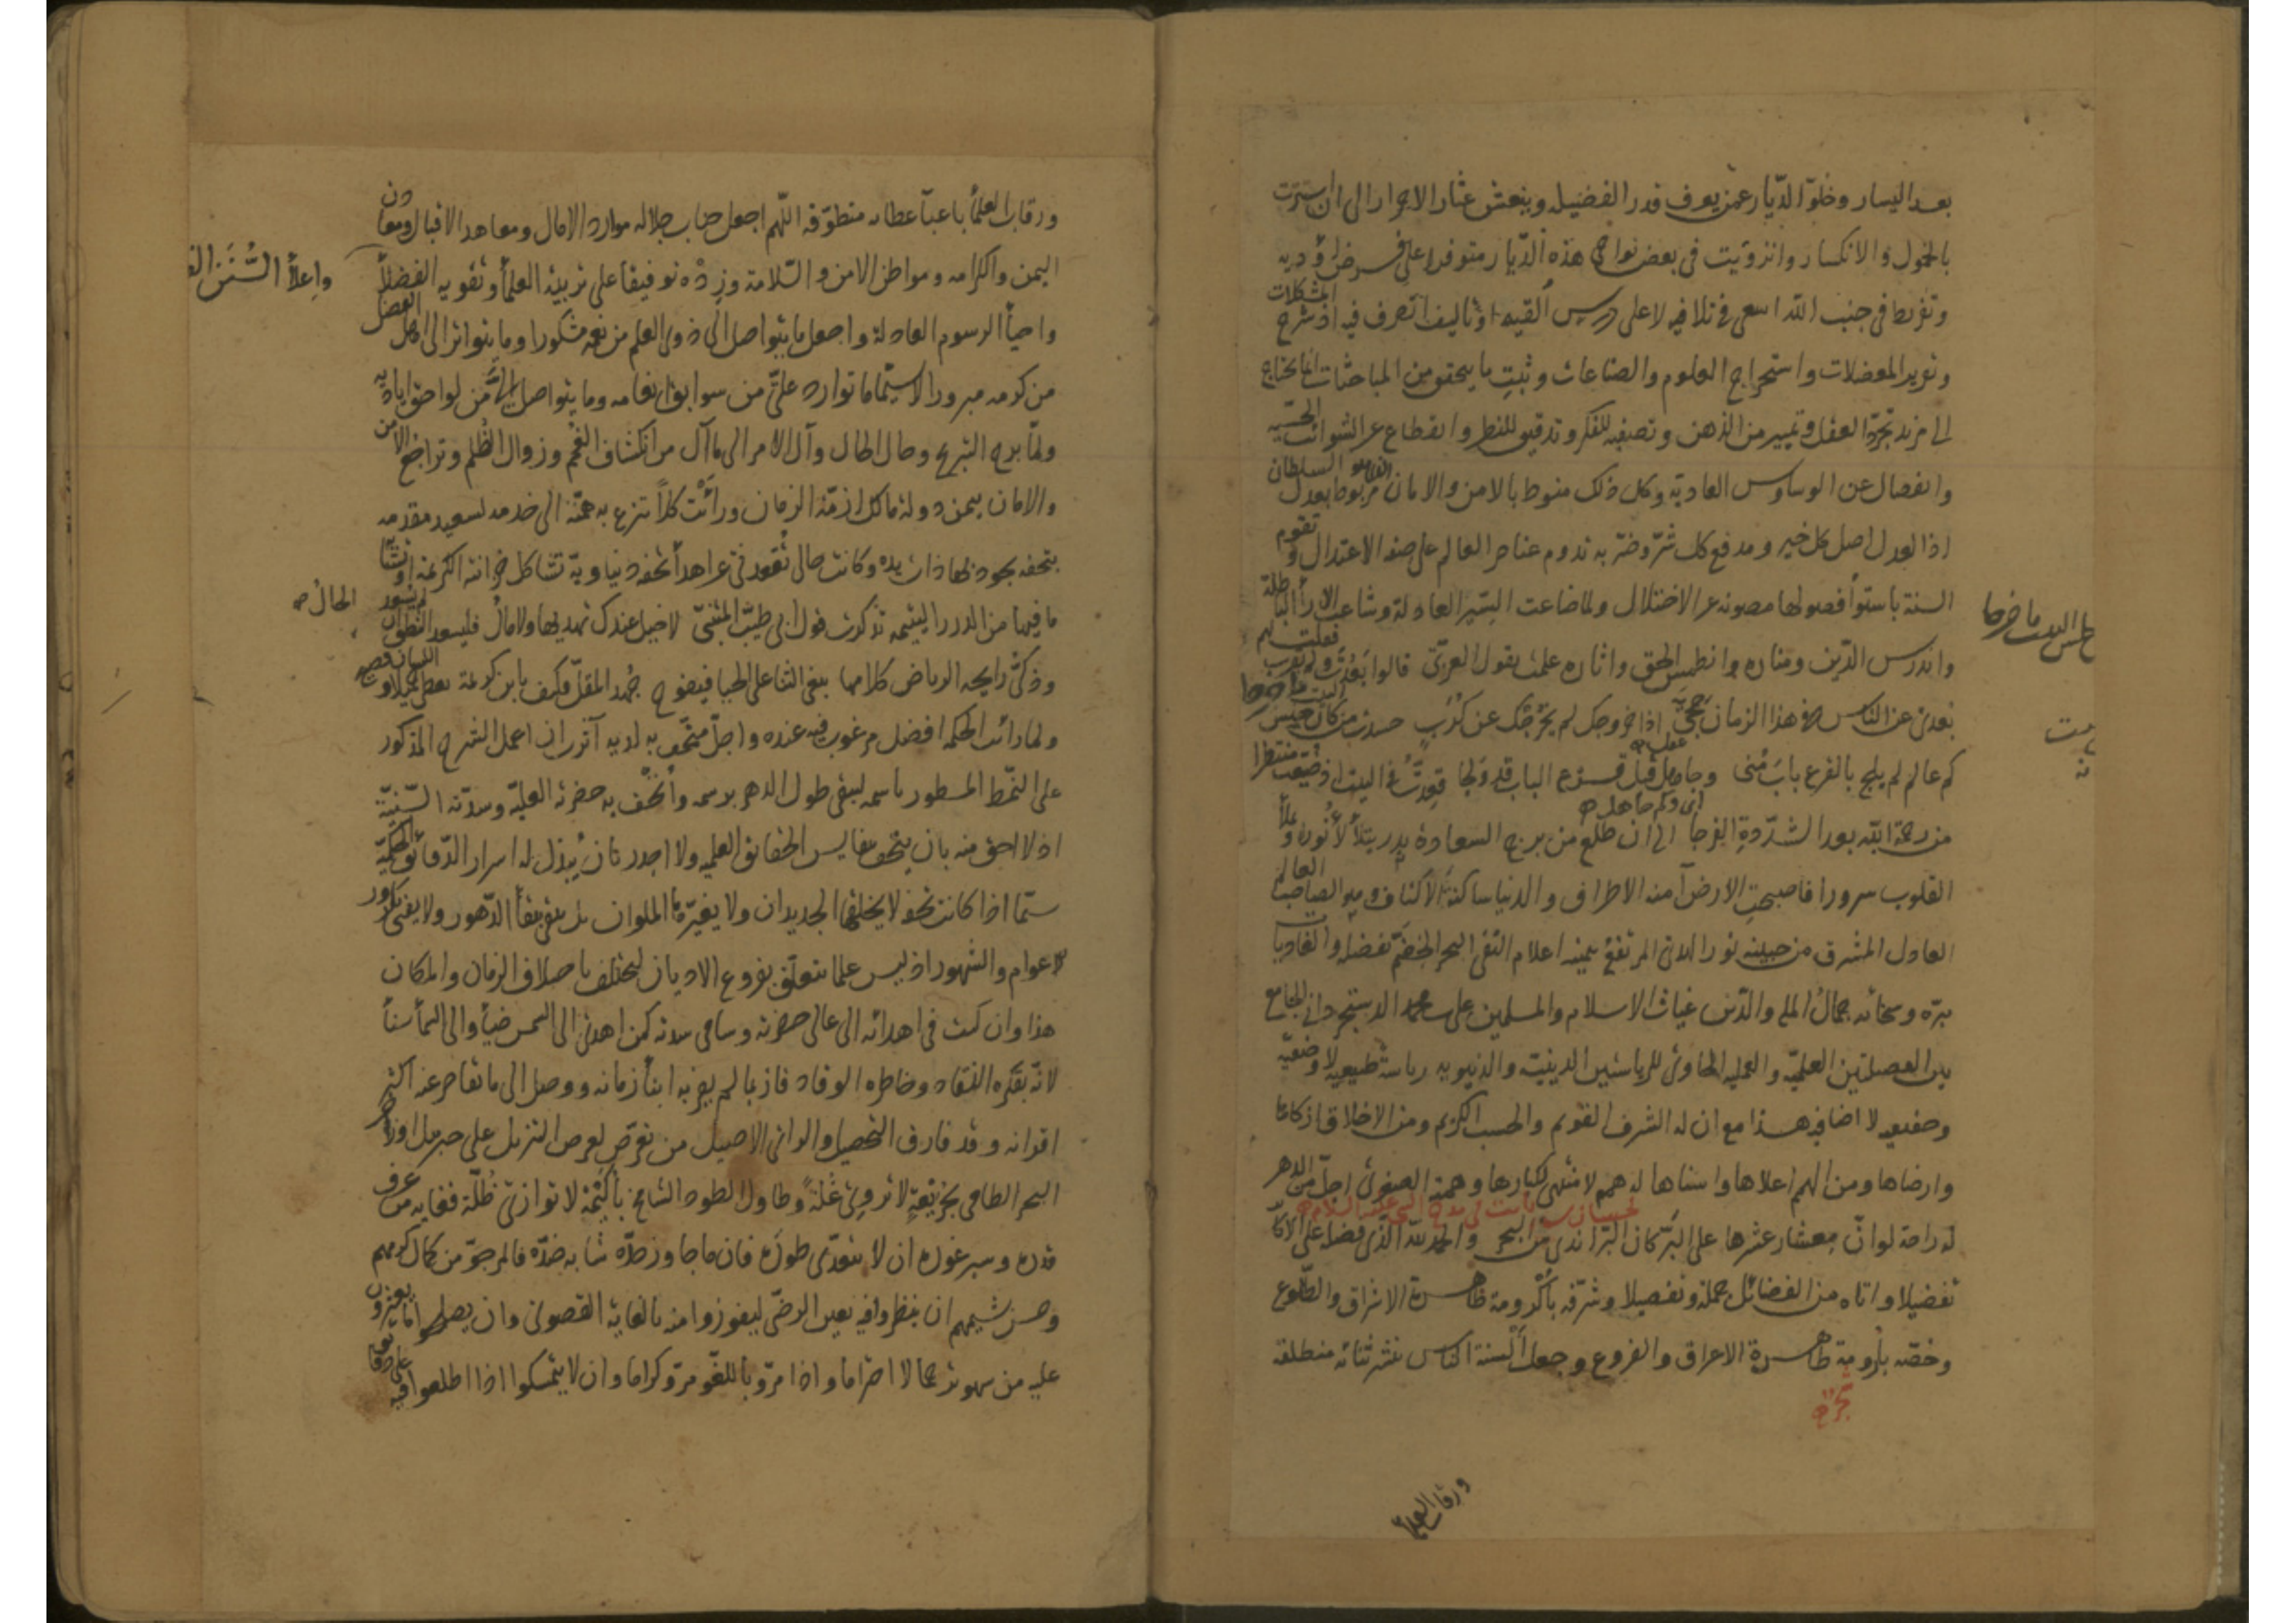 بعد اليسار وخلوّ الدّيار عمّن يعرف قدر الفضيلة وينعش عثار الاحرار الى ان استترت
بالخمول والانكسار وانزويت فى بعض نواحى هذه الدّيار متوفرا على فرض اؤديه
وتفريط فى جنب الله اسعى فى تلافيه لا على درس القيه او تاليف اتصرف فيه اذ شرح المشكلات
وتقرير المعضلات واستخراج العلوم والصناعات وتثبيت ما يتحقق من المباحثات انما يحتاج
الى مزيد تجرّد العقل وتمييز من الذهن وتصفية للفكر وتدقيق للنظر وانقطاع عن الشوائب الحسّية
وانفصال عن الوساوس العادية وكل ذلك منوط بالامن والامان مربوط بعدل السلطان
اذ العدل اصل كل خير ومدفع كل شرّ وضرّ به تدوم عناصر العالم على صفة الاعتدال وتقوم
السنة باستواء فصولها مصونة عن الاختلال ولما ضاعت السّير العادلة وشاعت الاراء الباطلة
واندرس الدّين ومناره وانطمس الحق واثاره علمت بقول العربىّ قالوا بعدت ولم تقرب فقلت لهم
بعدى عن الناس فى هذا الزمان حجى اذا خروجك لم يخرجك عن كرب حسدت من كان حلس البيت ما خرجا
كم عالم لم يلج بالقرع باب منى وجاهل قبل قرع الباب قد ولجا فقعدت فى البيت اذ ضيعت منتظرا
اى وكم جاهل
من رحمة الله بعد الشدّة الفرجا الى ان طلع من برج السعادة بدر يتلألأ نوره وملأ
القلوب سرورا فاصبحت الارض آمنة الاطراف والدنيا ساكنة الاكناف
العادل المشرق من جبينه نور الهدى المرتفع بيمينه اعلام التقى البحر الخضمّ تفضله والغاديات
برّه وسخائه جمال الملة والدّين غياث الاسلام والمسلمين على بن محمد الدستجردانى الجامع
بين الفضيلتين العلميّة والعملية الحاوى للرياستين الدينية والدنيوية رياسة طبيعية لا وضعيّة
وحقيقية لا اضافية هذا مع ان له الشرف القويم والحسب الكريم ومن الاخلاق ازكاها
وارضاها ومن الهمم اعلاها واسناها له همم لا منتهى لكبارها وهمته الصغرى اجلّ من الدهر
له راحة لو انّ معشار عشرها على البرّ كان البرّ اندى من البحر والحمد لله الذى فضله على الاكابر
تفضيلا واتاه من الفضائل جملة وتفصيلا وشرّفه باكرومة ظاهرة الاشراق والطلوع
وخصّه بارومة طاهرة الاعراق والفروع وجعل السنة الناس بنشر ثنائه منطلقة
ورقاب العلماء
ورقاب العلماء باعباء عطائه متطوّقة اللّهم اجعل جناب جلاله موارد الامال ومعاهد الاقبال ومعادن
اليمن والكرامة ومواطن الامن والسّلامة وزده توفيقا على تربية العلماء وتقوية الفضلاء
واعلاء السُّنن
واحياء الرسوم العادلة واجعل ما يتواصل الى ذوى العلم من نعمه مشكورا وما يتواتر الى اهل الفضل
من كرمه مبرورا لا سيّما ما توارد علىّ من سوابق انعامه وما يتواصل الىّ من لواحق اياديه
ولمّا برح التبريح وحال الحال وآل الامر الى ما آل من انكشاف الغمم وزوال الظُلم وتراجع الامن
والامان بيمن دولة مالك ازمّة الزمان ورأيت كلّاً تنزع به همّته الى خدمة لسعيد مقدمه
بتحفة يجود بها ذات يده وكانت حالى تقعد بى عن اهداء تحفة دنياوية تشاكل خزانته الكريمة
ما فيها من الدرر اليتيمة تذكرت قول ابى طيّب المتنبىّ لا خيل عندك تهديها ولا مال فليسعد النطق ان لم يسعد
الحال
وذكىّ رايحة الرياض كلامها يبغى الثناء على الحيا فيفوح جهد المقلّ فكيف بابن كريمة
ولما رأيت الحكمة افضل مرغوب فيه عنده واجلّ متحف به لديه آثرت ان اعمل الشرح المذكور
على النّمط المسطور باسمه ليبقى طول الدهر برسمه وأتحف به حضرته العليّة وسدّته السّنيّة
اذ لا احق منه بان يتحف بنفايس الحقائق العلمية ولا اجدر بان يُبذل له اسرار الدّقائق الحكميّة
سيّما اذا كانت تحفة لا يخلقها الجديدان ولا يغيّرها الملوان بل تبقى بقاء الدّهور ولا يفنى بكرور
الاعوام والشهور اذ ليس علما يتعلّق بفروع الاديان ليختلف باختلاف الزمان والمكان
هذا وان كنت فى اهدائه الى عالى حضرته وسامى سدته كمن اهدى الى الشمس ضياء والى السماء سناء
لانّه بفكره النقاد وخاطره الوقاد فاز بما لم يفز به ابناء زمانه ووصل الى ما تقاصر عنه اكثر
اقرانه وقد فارق التحصيل والرأى الاصيل من تعرّض لعرض التنزيل على جبريل او زاخر
البحر الطامى بجزيعةٍ لا تروى غلّة وطاول الطود الشامخ بأكيمة لا توازى ظُلّة فغاية من عرف
قدره وسبر غوره ان لا يتعدّى طوره فان ما جاوز حدّه شابه ضدّه فالمرجوّ من كمال كرمهم
وحسن شيمهم ان ينظروا فيه بعين الرضى ليفوزوا منه بالغاية القصوى وان يصلحوا ما يعثرون
عليه من سهو تزحما لا اضراما واذا مرّوا باللغو مرّوا كراما وان لا يتمسكوا اذا اطلعوا فيه